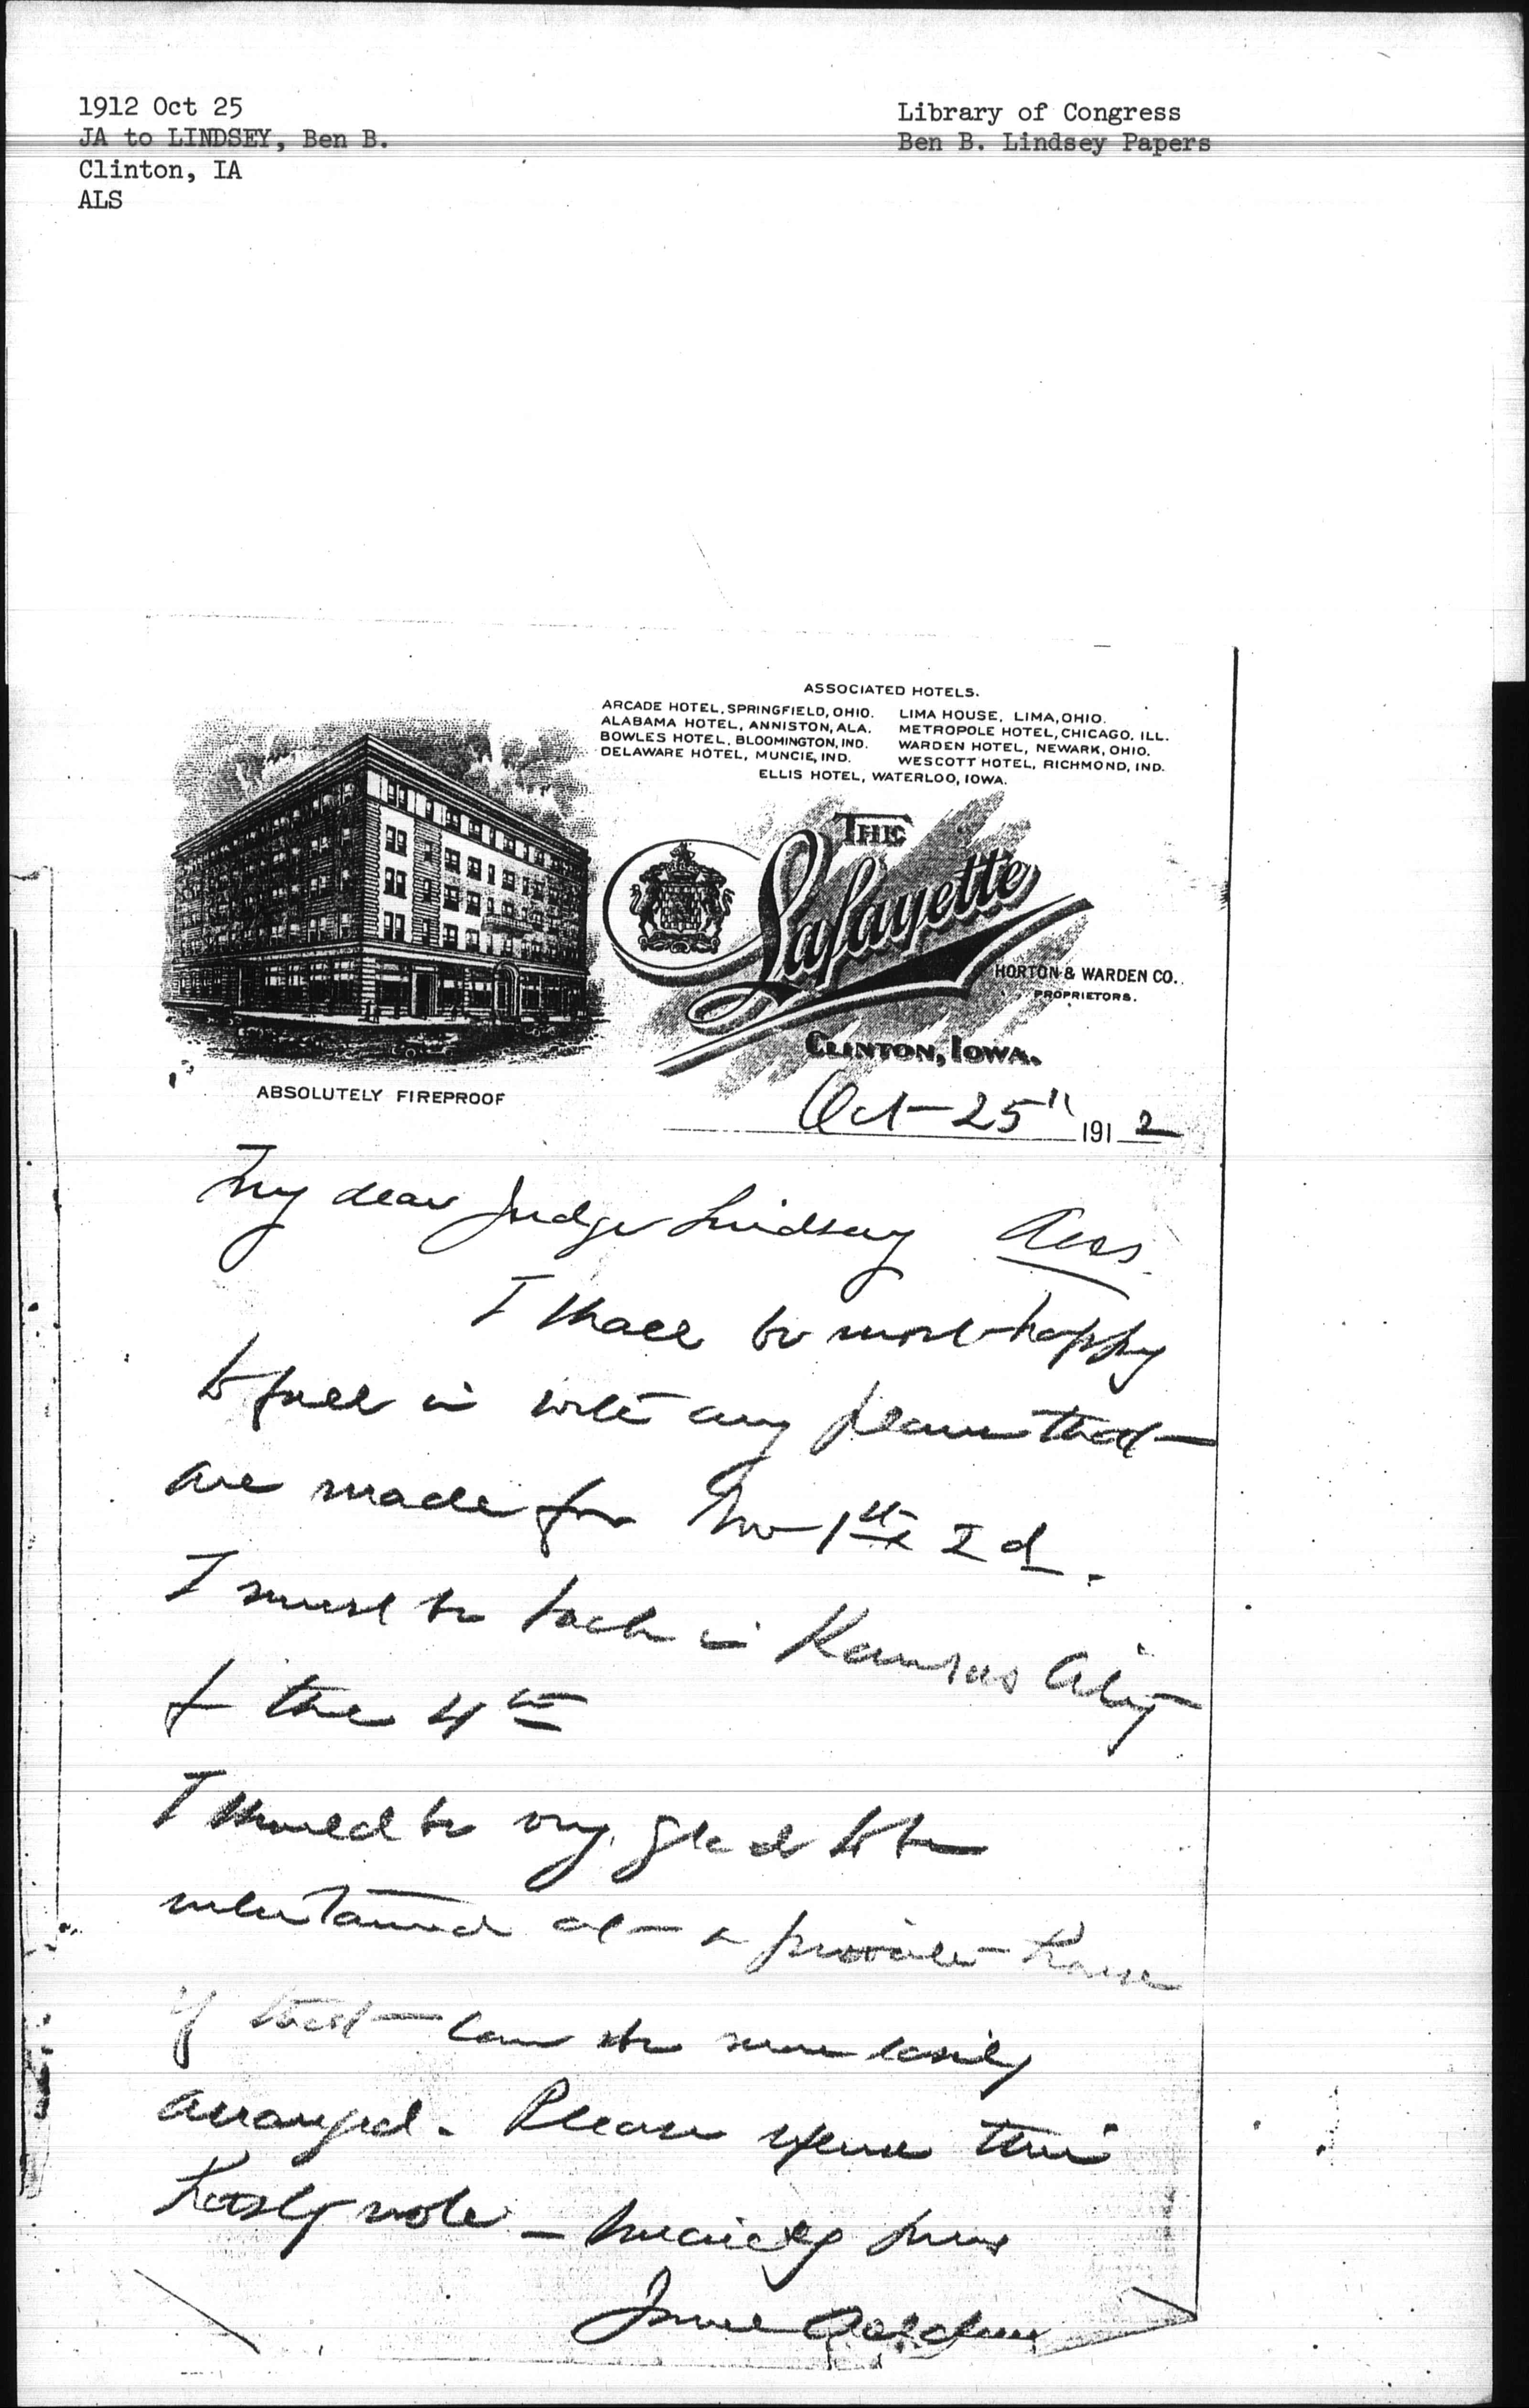 1912 Oct 25
JA to LINDSEY, Ben B.
Clinton, IA
ALS
Library of Congress
Ben B. Lindsey Papers
ASSOCIATED HOTELS.
ARCADE HOTEL, SPRINGFIELD, OHIO.
ALABAMA HOTEL, ANNISTON, ALA.
BOWLES HOTEL, BLOOMINGTON, IND.
DELAWARE HOTEL, MUNCIE, IND.
LIMA HOUSE, LIMA, OHIO.
METROPOLE HOTEL, CHICAGO. ILL.
WARDEN HOTEL, NEWARK, OHIO.
WESCOTT HOTEL, RICHMOND, IND.
ELLIS HOTEL, WATERLOO, IOWA.
THE
Lafayette
HORTON & WARDEN CO.
PROPRIETORS.
CLINTON, IOWA.
ABSOLUTELY FIREPROOF
Oct 25" 1912
My dear Judge Lindsey
I shall be most happy
to fall in with any plans that
are made for Nov 1st & 2d.
I must be back in Kansas City
the 4th
I should be very glad to be
entertained at a private house
if that can be easily
arranged. Please excuse this
hasty note - Sincerely yours
Jane Addams